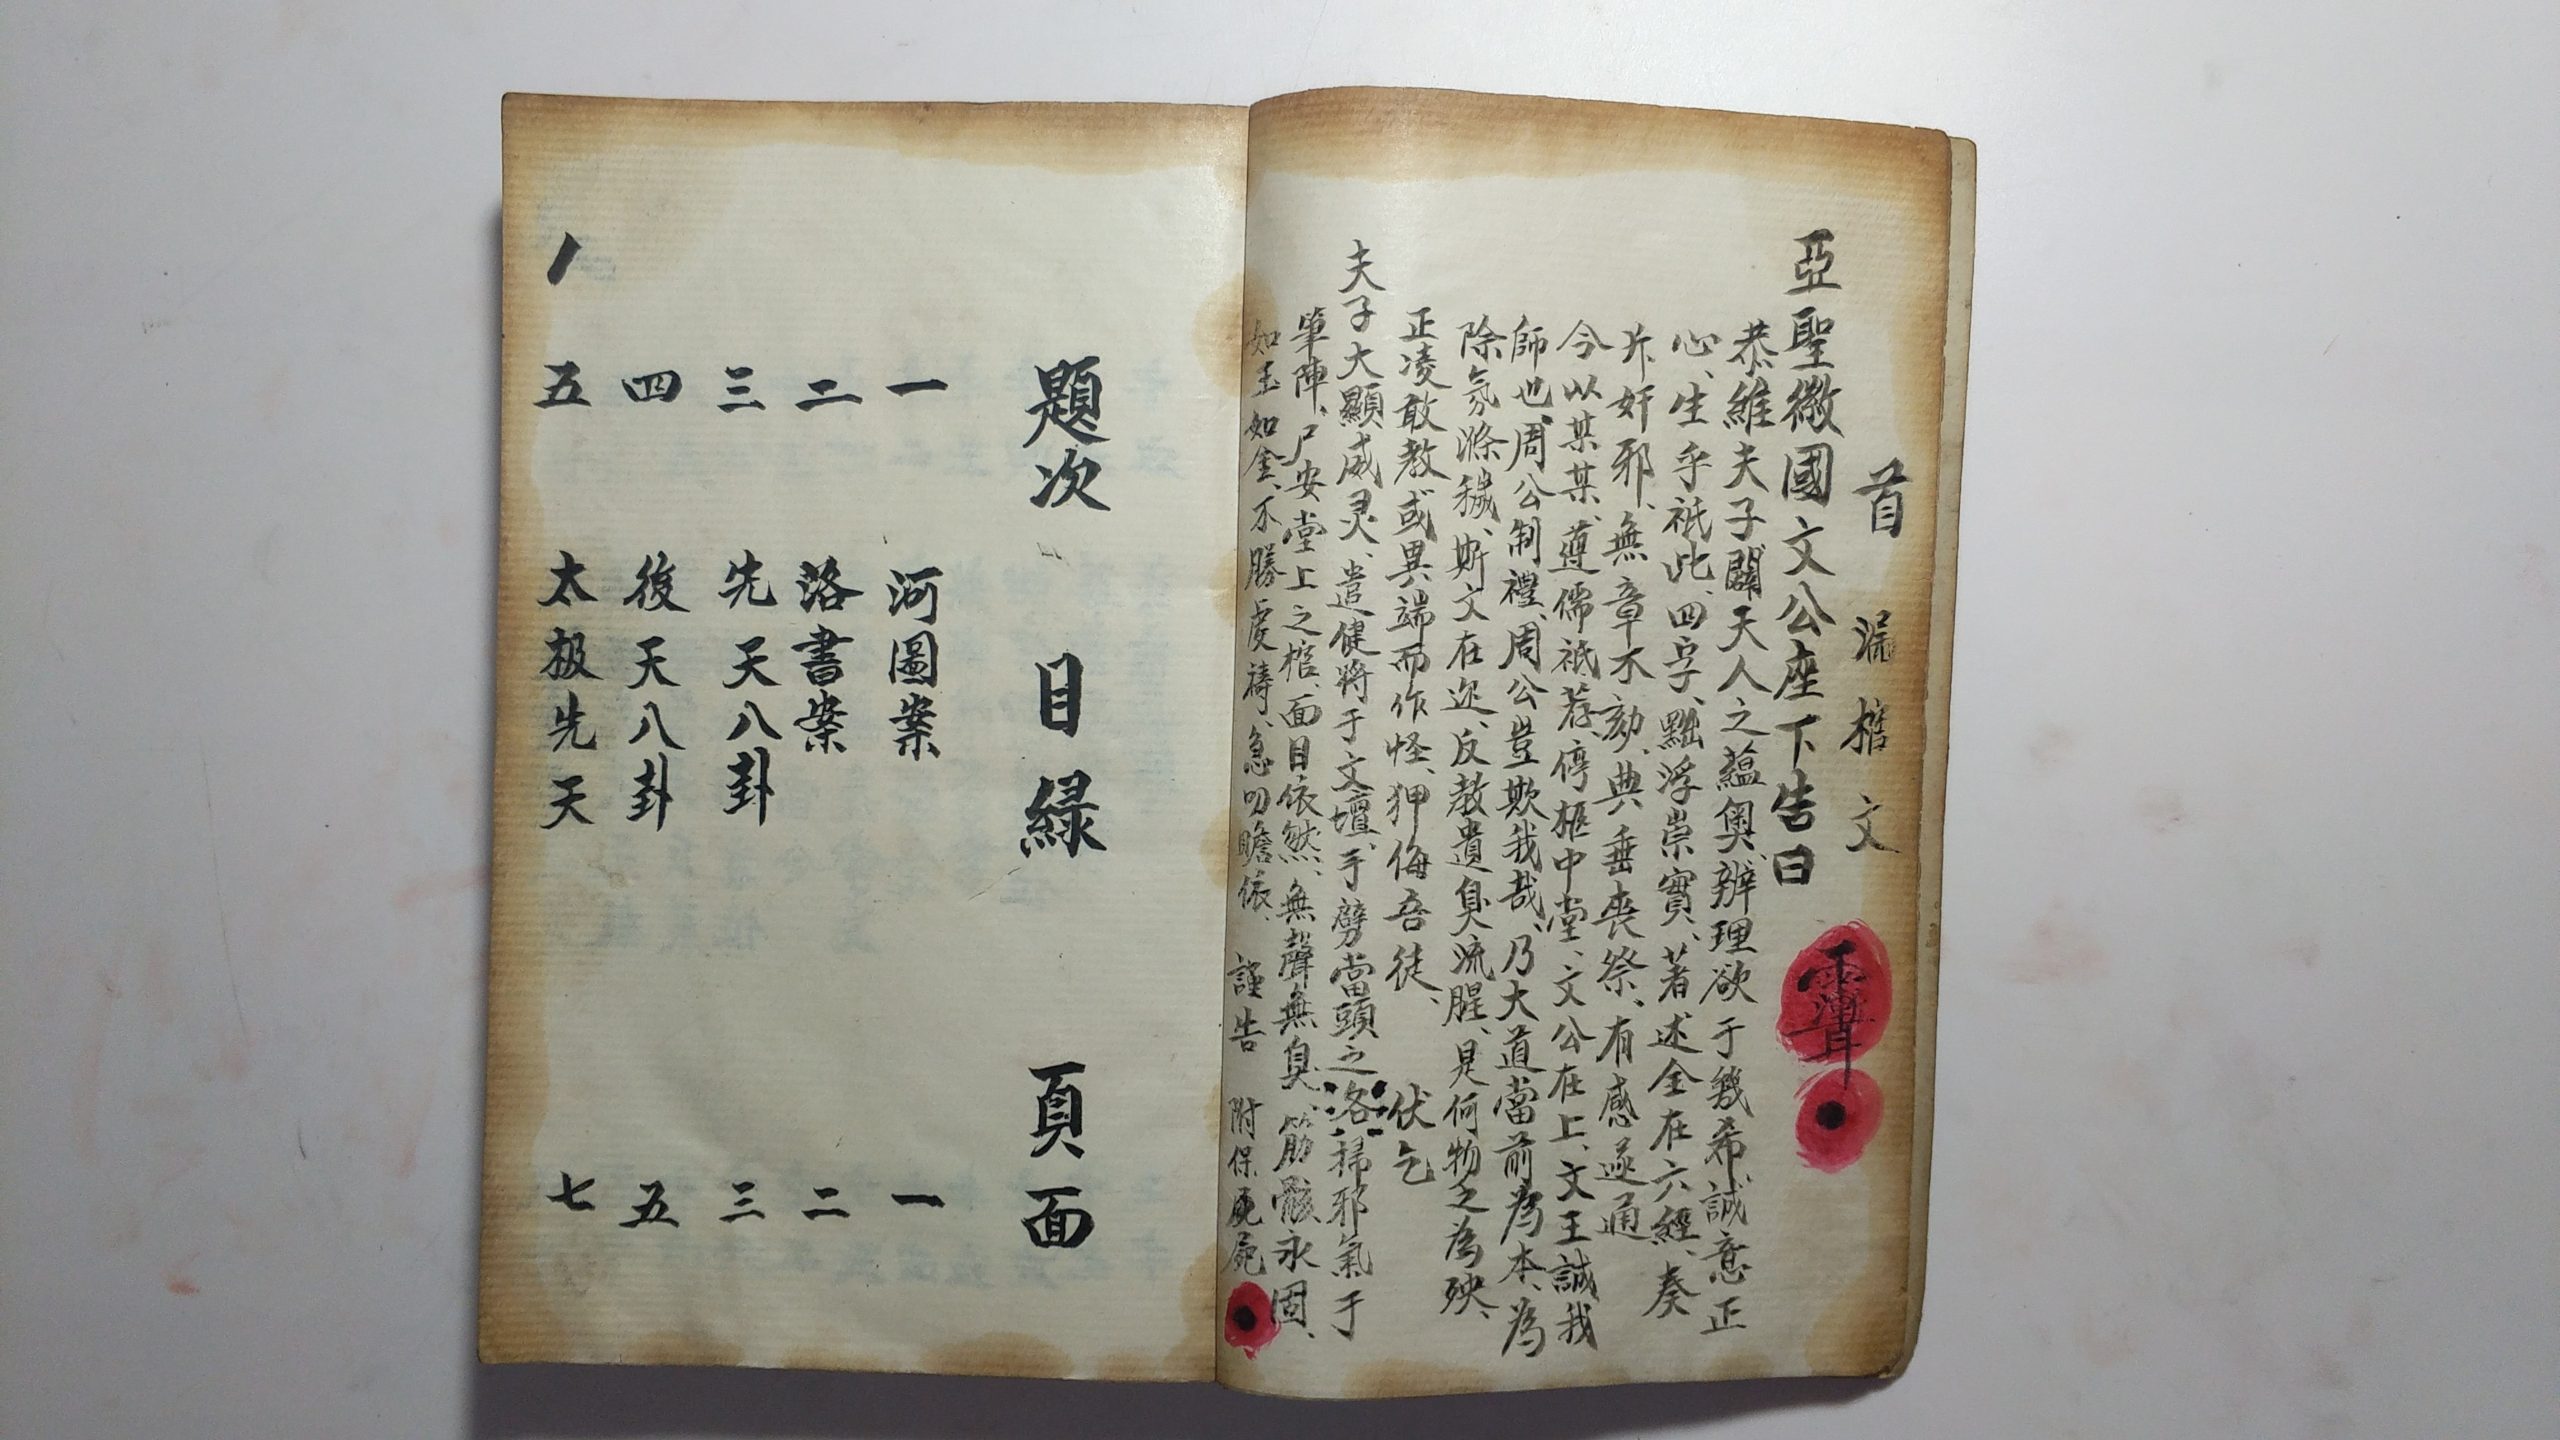 首 漏棺文
亞聖徽國文公座下告曰
恭維夫子闢天人之蘊奧、辨理欲于幾希、誠意正
心、生乎祇此、四字、黜浮崇實、著述全在六經、奏
斥奸邪、無章不劾、典垂喪祭、有感遂通
今以某某、遵儒祇荐、停柩中堂、文公在上、文王誠我
師也、周公制禮、周公豈欺我哉、乃大道當前為本、為
除氛滌穢、斯文在迩、反教遺臭流腥、是何物之為殃、
正凌敢教或異端而作怪、狎侮吾徒、 伏乞
夫子大顯威灵、遣健将于文壇、手劈當頭之洛掃邪氣于
筆陣、尸安堂上之棺、面目依然、無聲無臭、筋骸永固、
如玉如金、不勝虔禱、急叨瞻依、 謹告 附保屍
題次 目緑 頁面
一 河圖案 一
二 洛書案 二
三 先天八卦 三
四 後天八卦 五
五 太极先天 七